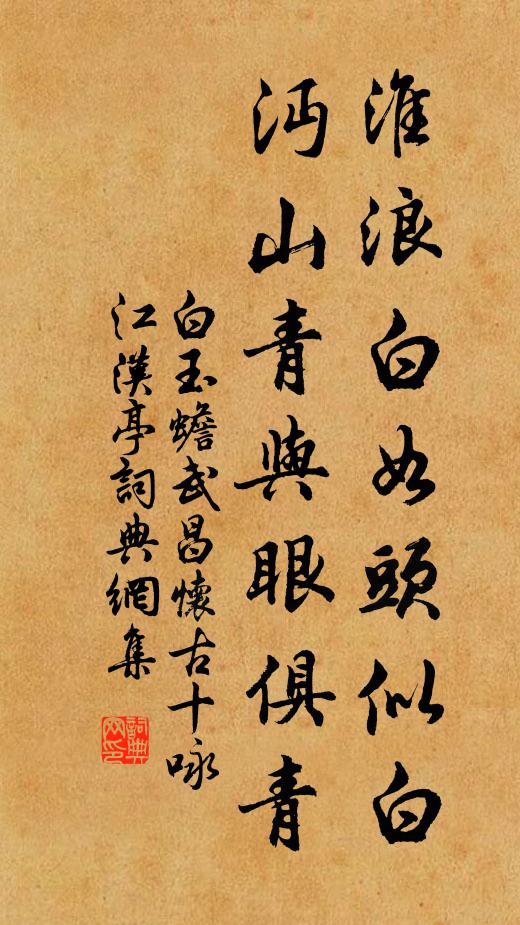 淮浪白如頭似白
沔山青與眼俱青
白玉蟾武昌懷古十咏
江漢亭詞典網集
詞典網印